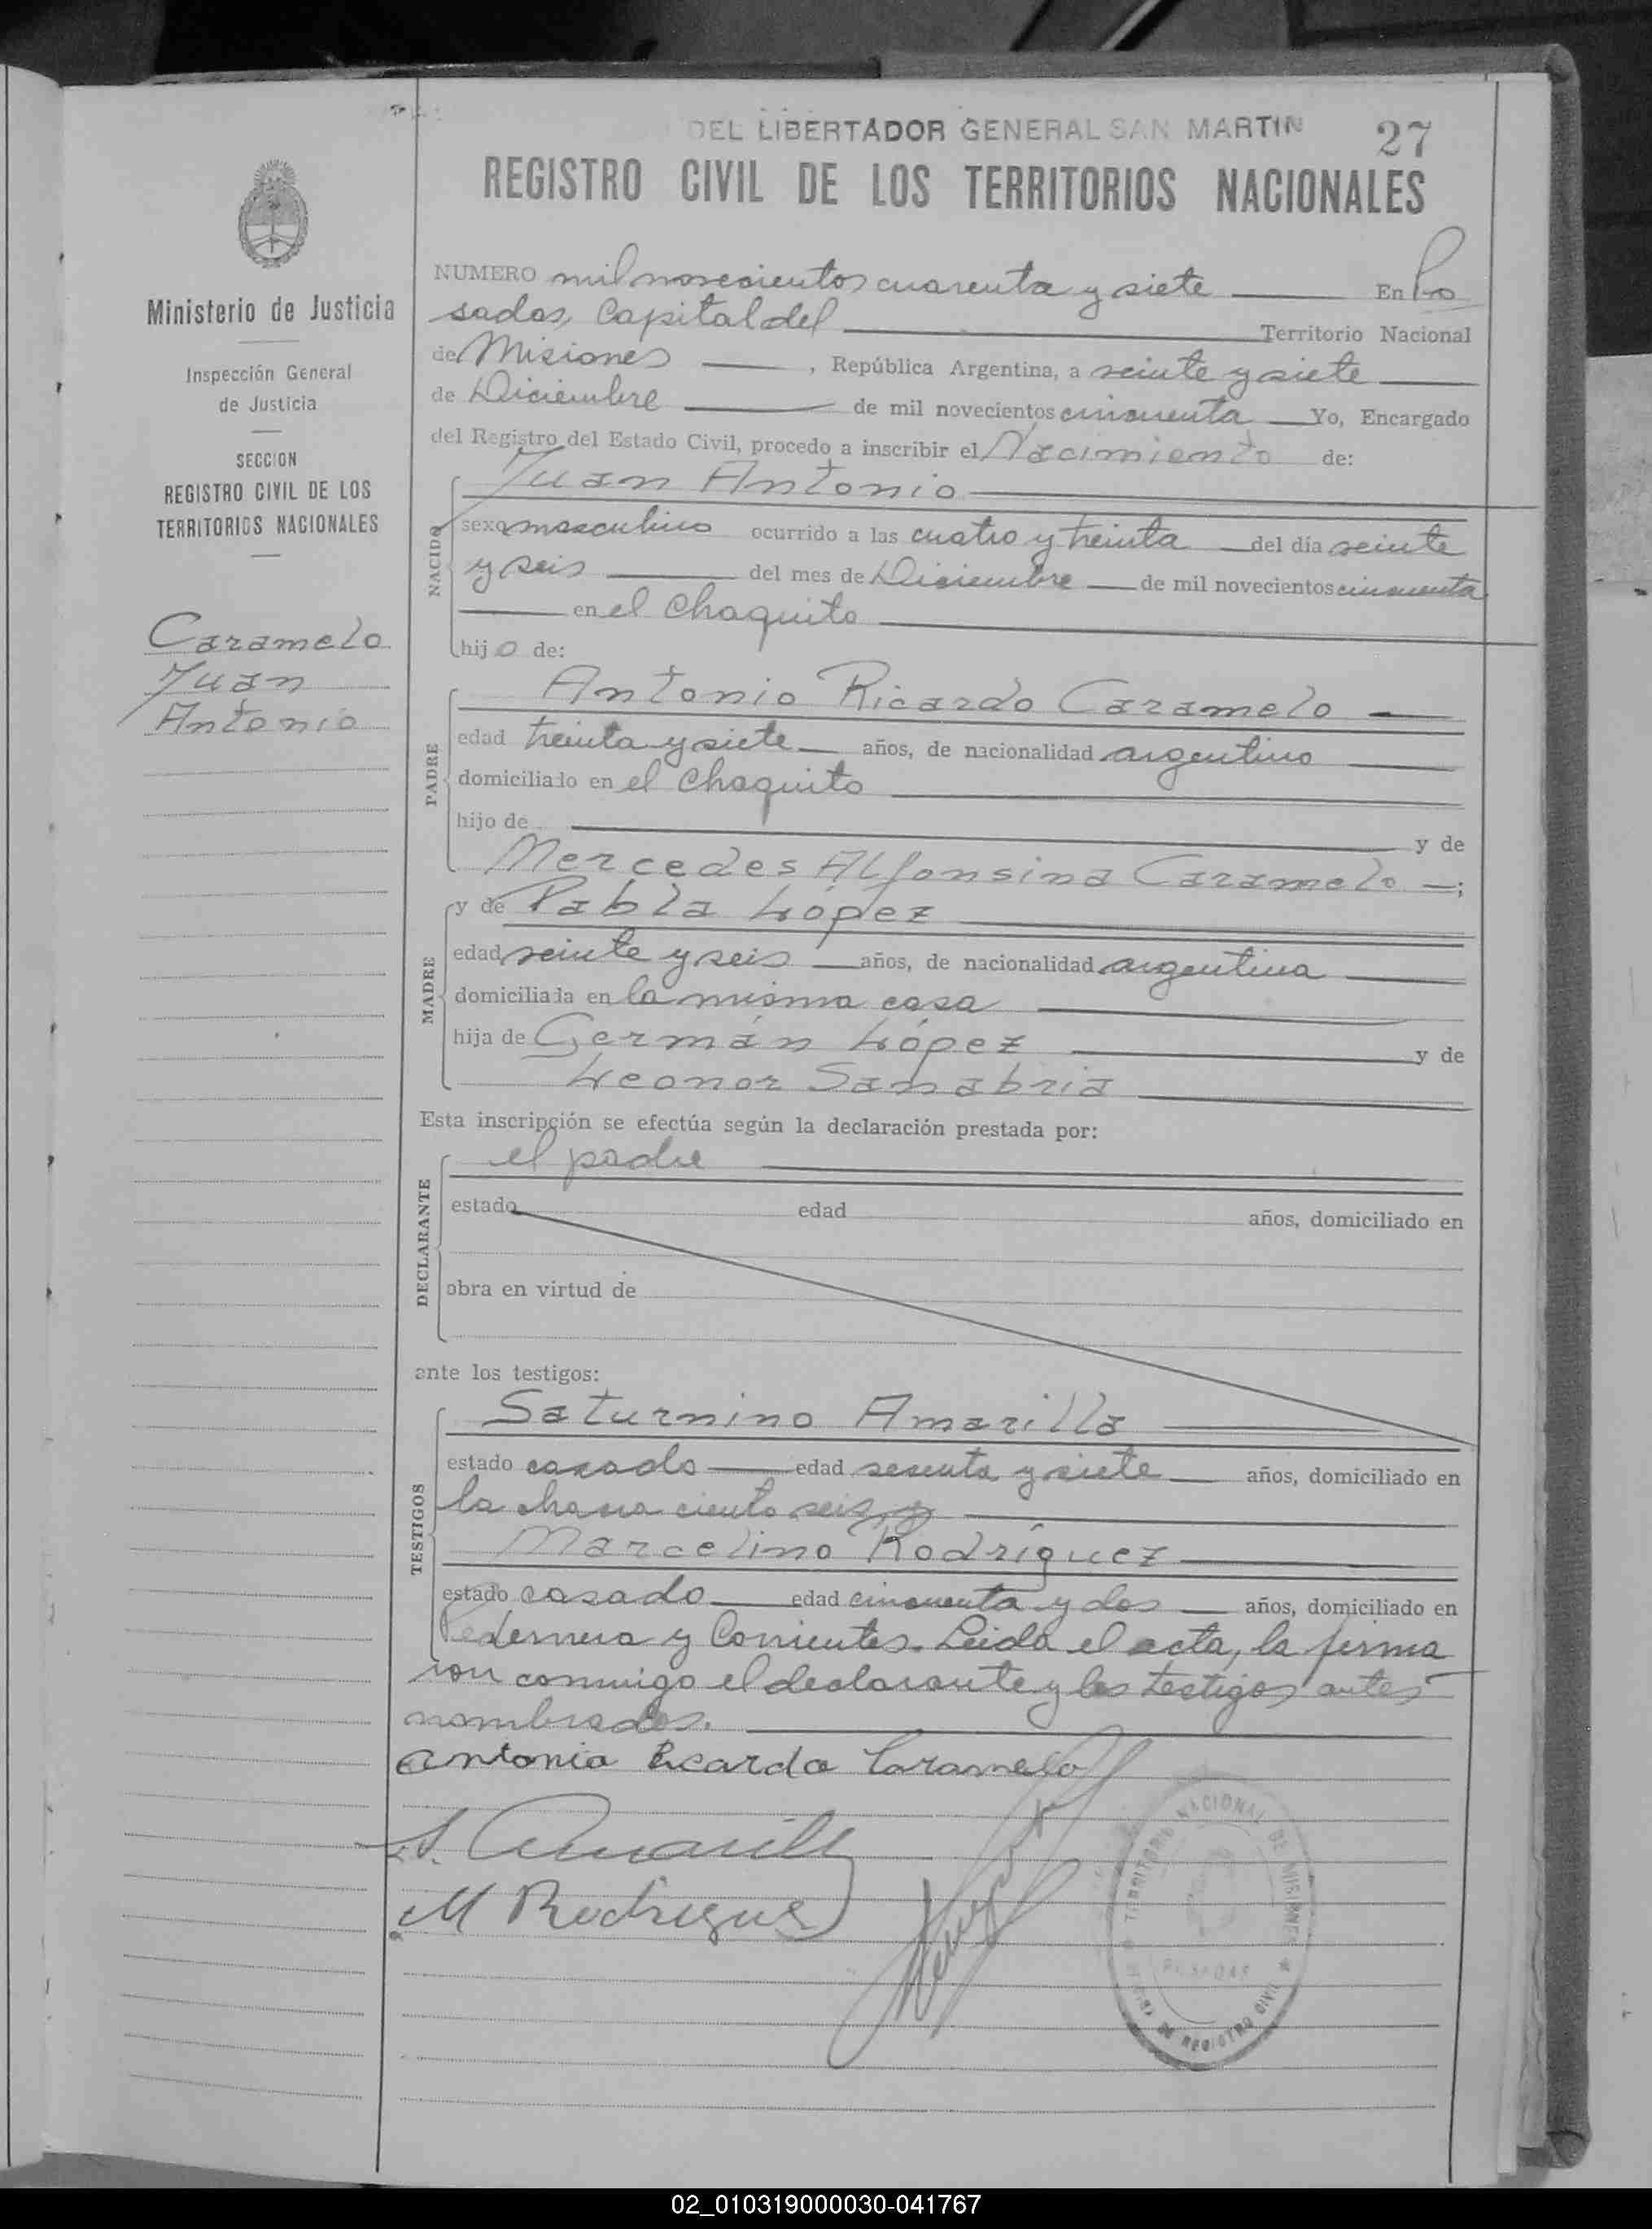 DEL LIBERTADOR GENERAL SAN MARTIN
27
REGISTRO CIVIL DE LOS TERRITORIOS NACIONALES
Ministerio de Justicia
Inspección General
de Justicia
SECCION
REGISTRO CIVIL DE LOS
TERRITORIOS NACIONALES
Caramelo
Juan
Antonio
NUMERO mil novecientos cuarenta y siete En Po
sadas, Capital del Territorio Nacional
de Misiones , República Argentina, a veinte y siete
de Diciembre de mil novecientos cincuenta Yo, Encargado
del Registro del Estado Civil, procedo a inscribir el Nacimiento de:
NACIDO
Juan Antonio
sexo masculino ocurrido a las cuatro y treinta del día veinte
y seis del mes de Diciembre de mil novecientos cincuenta
en el Chaquito
hijo de:
PADRE
Antonio Ricardo Caramelo
edad treinta y siete años, de nacionalidad argentino
domiciliado en el Chaquito
hijo de y de
Mercedes Alfonsina Caramelo ;
MADRE
y de Pabla López
edad veinte y seis años, de nacionalidad argentina
domiciliada en la misma casa
hija de Germán López y de
Leonor Sanabria
Esta inscripción se efectúa según la declaración prestada por:
DECLARANTE
el padre
estado edad años, domiciliado en
obra en virtud de
ante los testigos:
TESTIGOS
Saturnino Amarilla
estado casado edad sesenta y siete años, domiciliado en
la chacra ciento seis, y
Marcelino Rodríguez
estado casado edad cincuenta y dos años, domiciliado en
Pedernera y Corrientes. Leida el acta, la firma
ron conmigo el declarante y los testigos antes
nombrados.
Antonio Ricardo Caramelo
S. Amarilla
M Rodriguez
TERRITORIO NACIONAL DE MISIONES
POSADAS
DE REGISTRO CIVIL
02_010319000030-041767